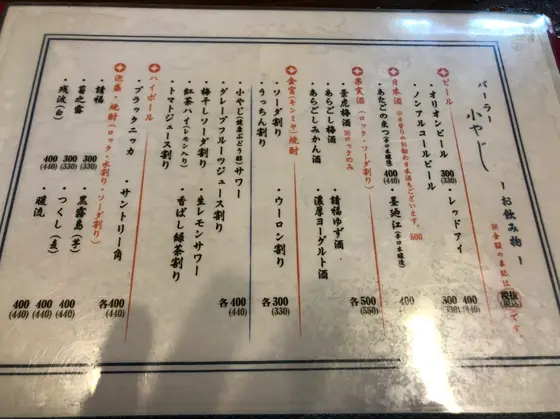 パーラー 小やじ ーお飲み物ー
※金額の表記は 税抜(税込) です。
ビール
・オリオンビール 300(330) ・レッドアイ 400(440)
・ノンアルコールビール 300(330)
日本酒 ※日替りのお勧め日本酒もございます。500
・あたごのまつ(辛口本醸造) 400(440) ・墨廼江(辛口本醸造) 400
果実酒(ロック・ソーダ割り) 各500(550)
・景虎梅酒 ※ロックのみ ・請福ゆず酒
・あらごし梅酒 ・濃厚ヨーグルト酒
・あらごしみかん酒
金宮(キンミヤ)焼酎 各300(330)
・ソーダ割り ・ウーロン割り
・うっちん割り
・小やじ(健康ぶどう酢)サワー 各400(440)
・グレープフルーツジュース割り
・梅干しソーダ割り ・生レモンサワー
・紅茶ハイ(レモン入り) ・香ばし緑茶割り
・トマトジュース割り
ハイボール 各400(440)
・ブラックニッカ ・サントリー角
泡盛・焼酎(ロック、水割り・ソーダ割り)
・請福 300(330) ・黒霧島(芋) 400(440)
・菊之露 300(330) ・つくし(麦) 400(440)
・残波(白) 400(440) ・暖流 400(440)